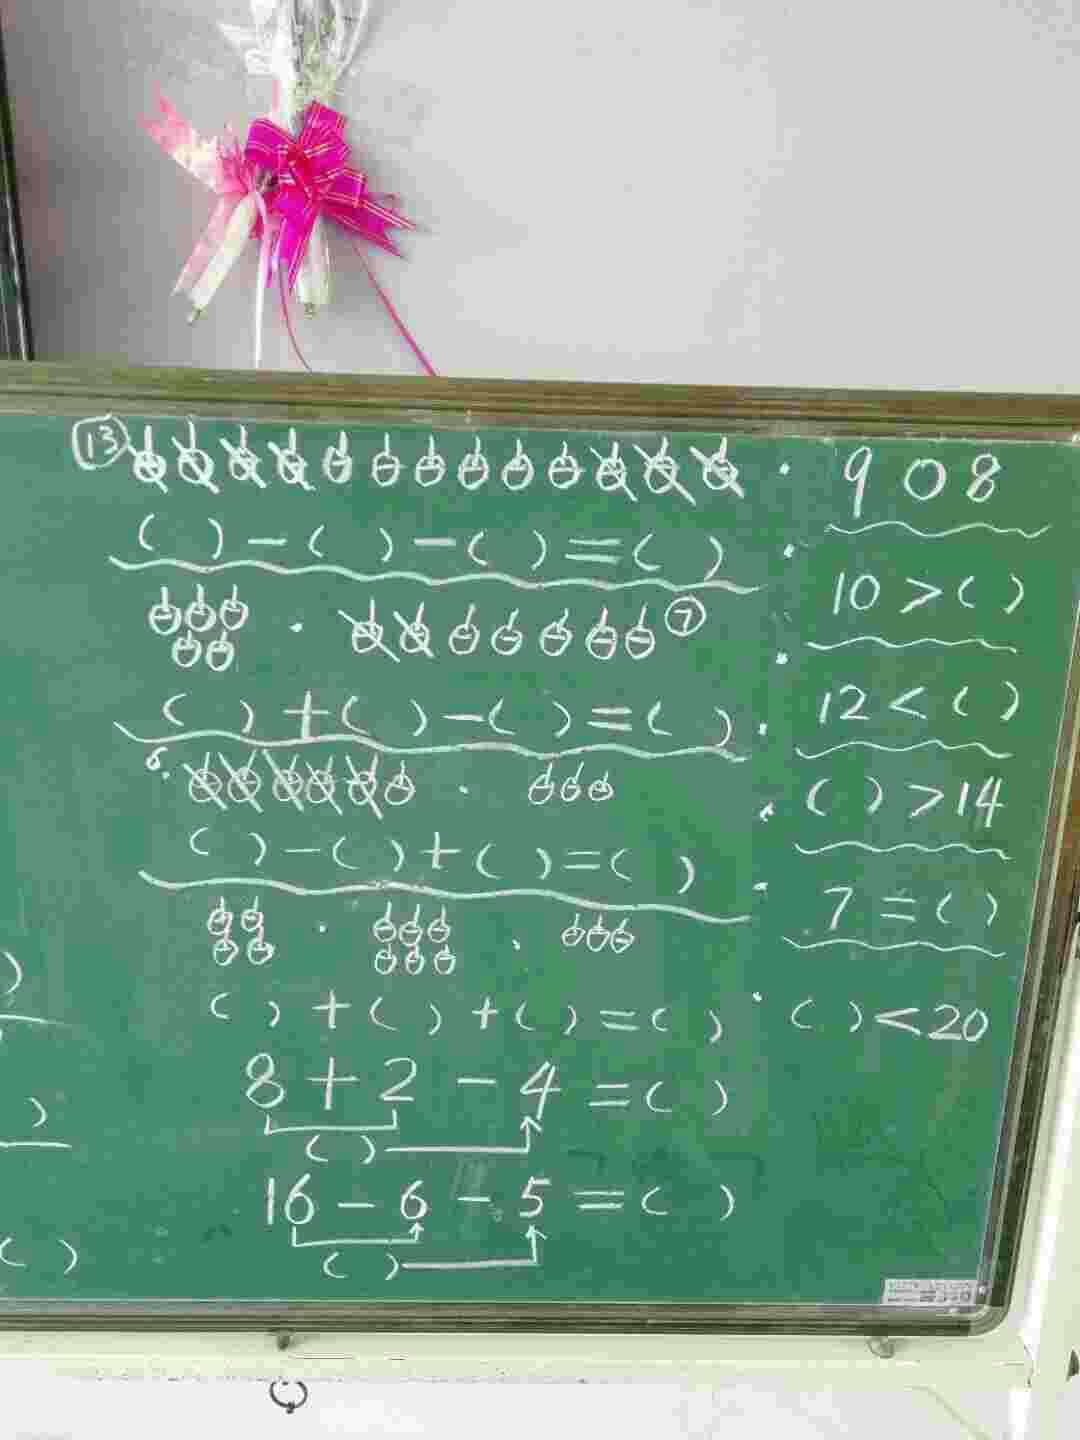 ⑬
( ) - ( ) - ( ) = ( )
⑦
( ) + ( ) - ( ) = ( )
6.
( ) - ( ) + ( ) = ( )
( ) + ( ) + ( ) = ( )
8 + 2 - 4 = ( )
( )
16 - 6 - 5 = ( )
( )
9 0 8
10 > ( )
12 < ( )
( ) > 14
7 = ( )
( ) < 20
)
)
( )